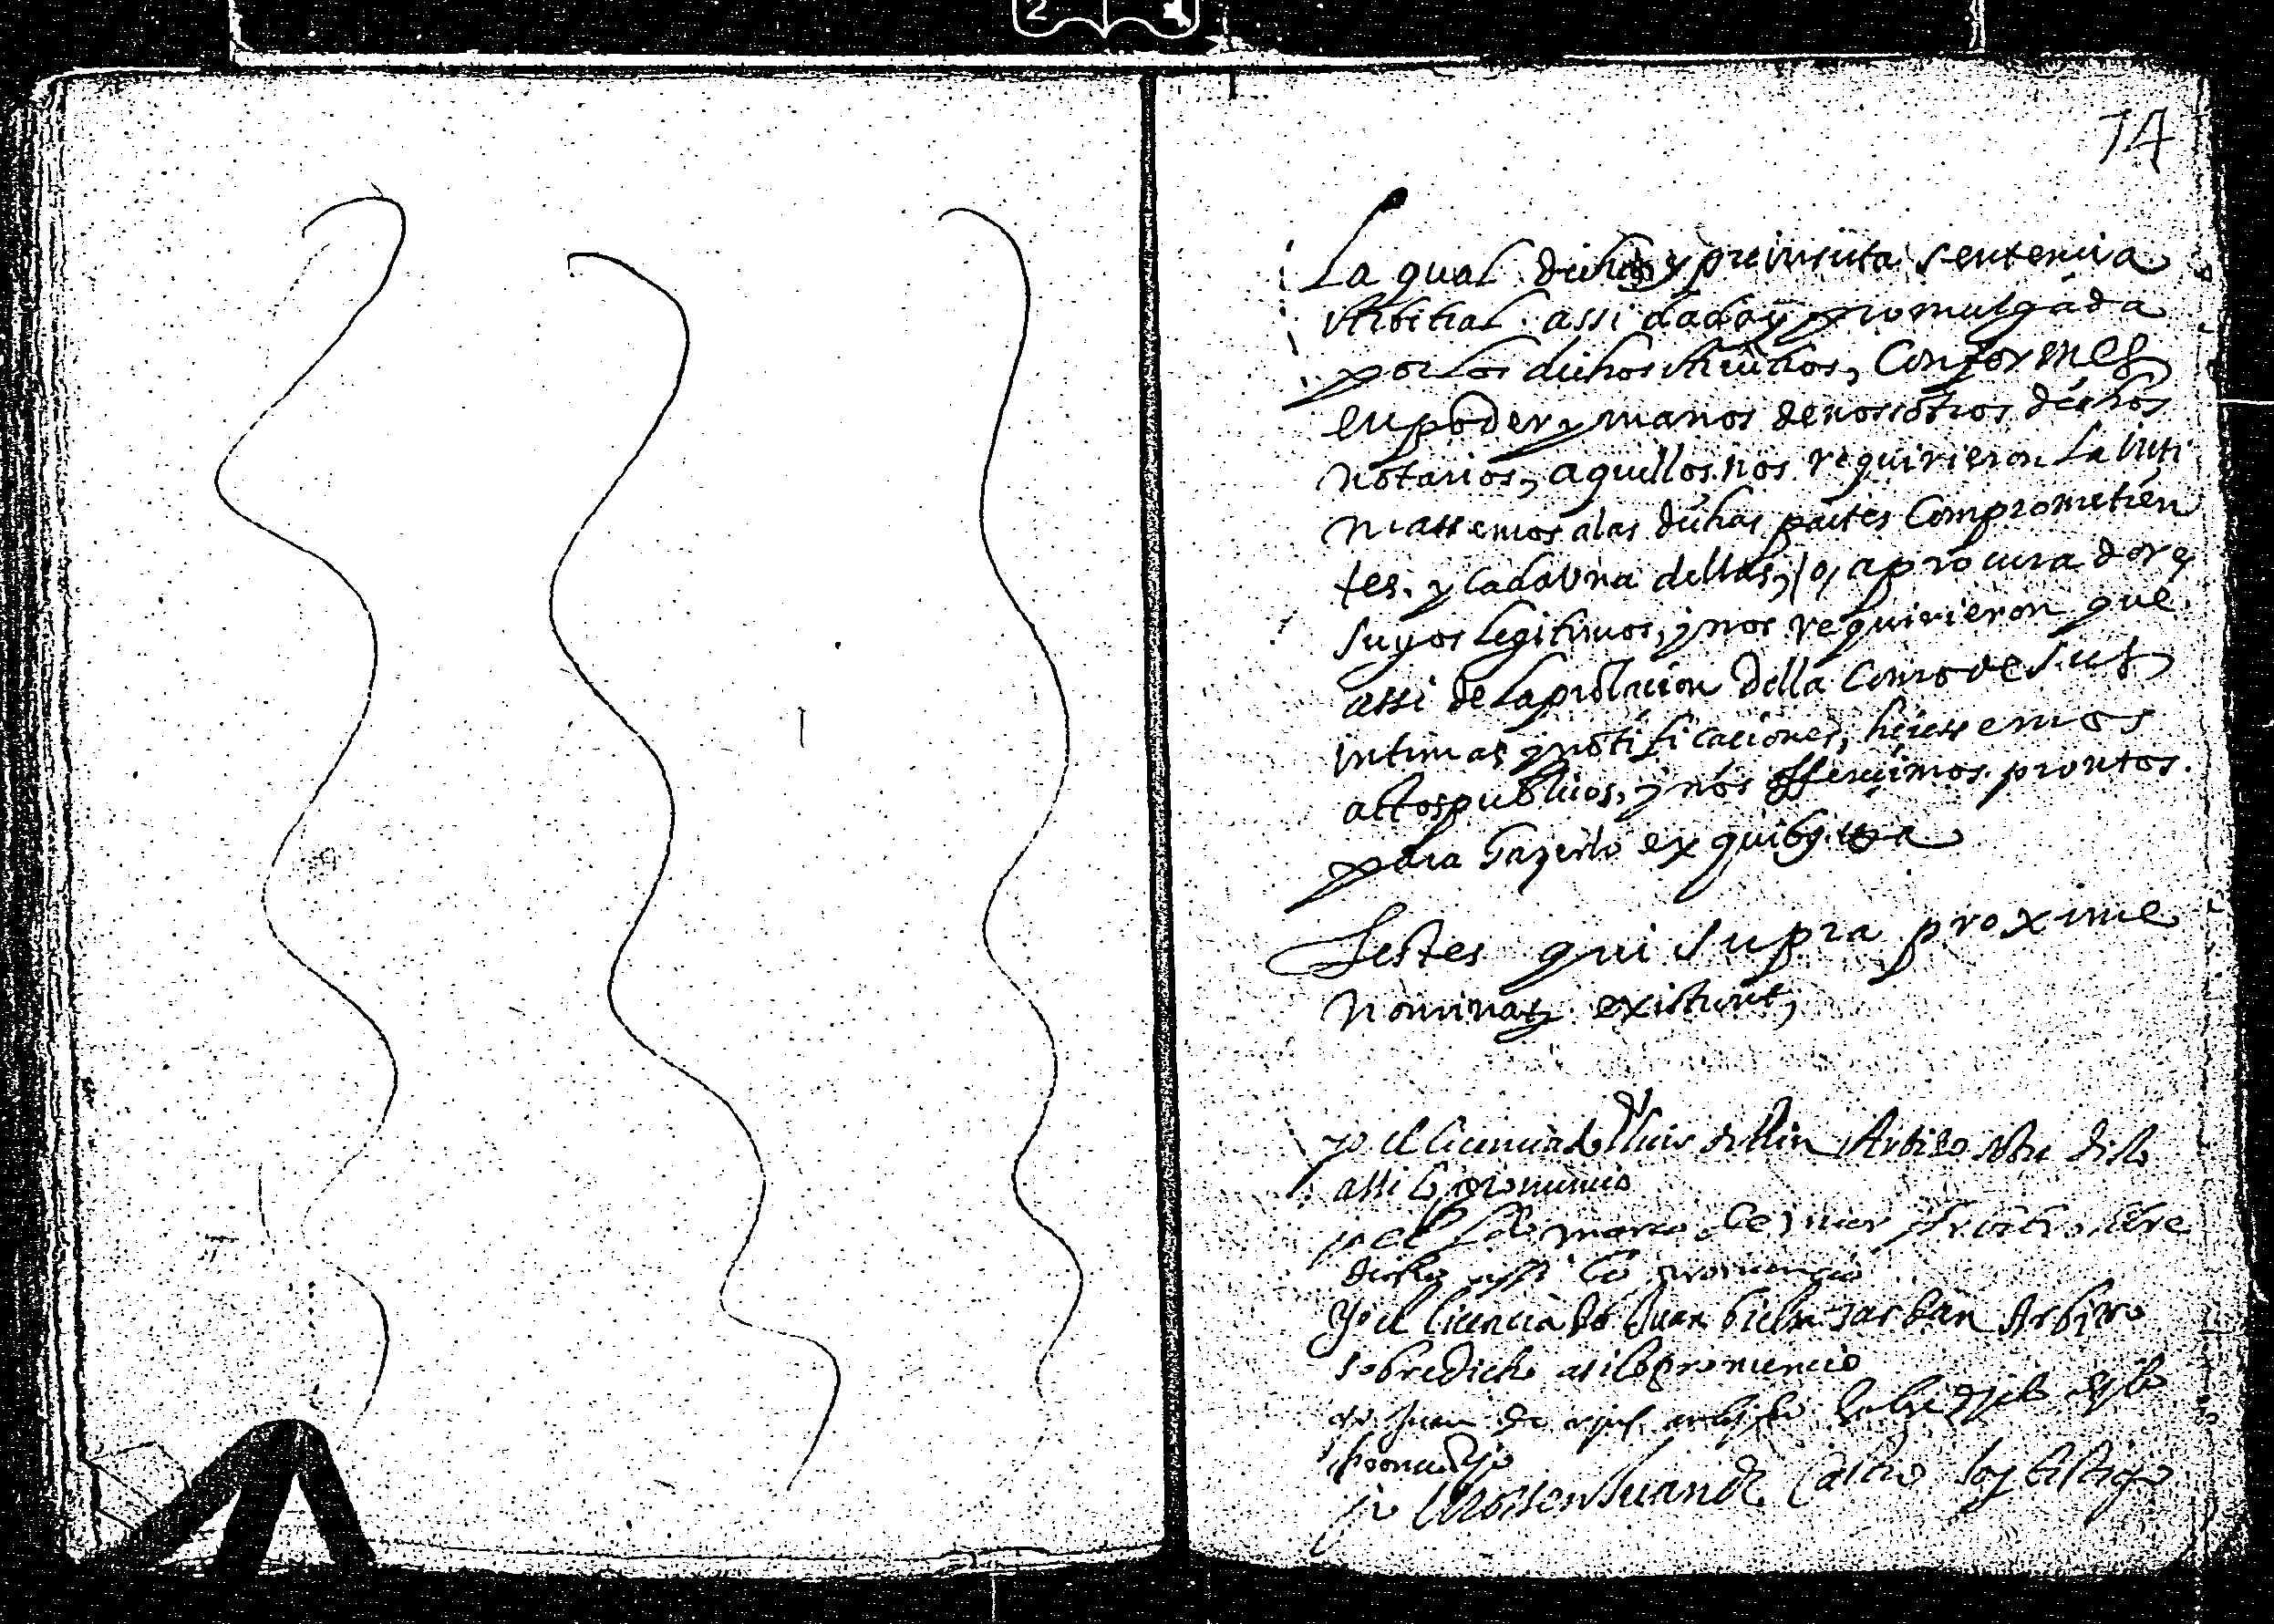 2
74
La qual dicha y preinserta sentencia
Arbitral assi dada y promulgada
por los dichos Arbitros, Conformes
en poder y manos de nosotros dichos
Notarios, aquellos nos requirieron La inti
massemos a las dichas partes Comprometien
tes. y cada una dellas, o, a procuradores
suyos legitimos, y nos requirieron que
assi de la prolacion della Como de sus
intimas y notificaciones, hiciessemos
actos publicos, y nos offrecimos promtos
para hazerlo ex quibus
Testes qui supra proxime
Nominati existunt,
yo el licenciado Arbitro sobre dicho
assi lo pronuncio
yo el marco Arbitro sobre
dicho assi lo pronuncio
Yo el licenciado Juan Arbitro
sobredicho asi lo pronuncio
yo Juan de
pronuncio
yo Mossen Juan de Castro soy testigo